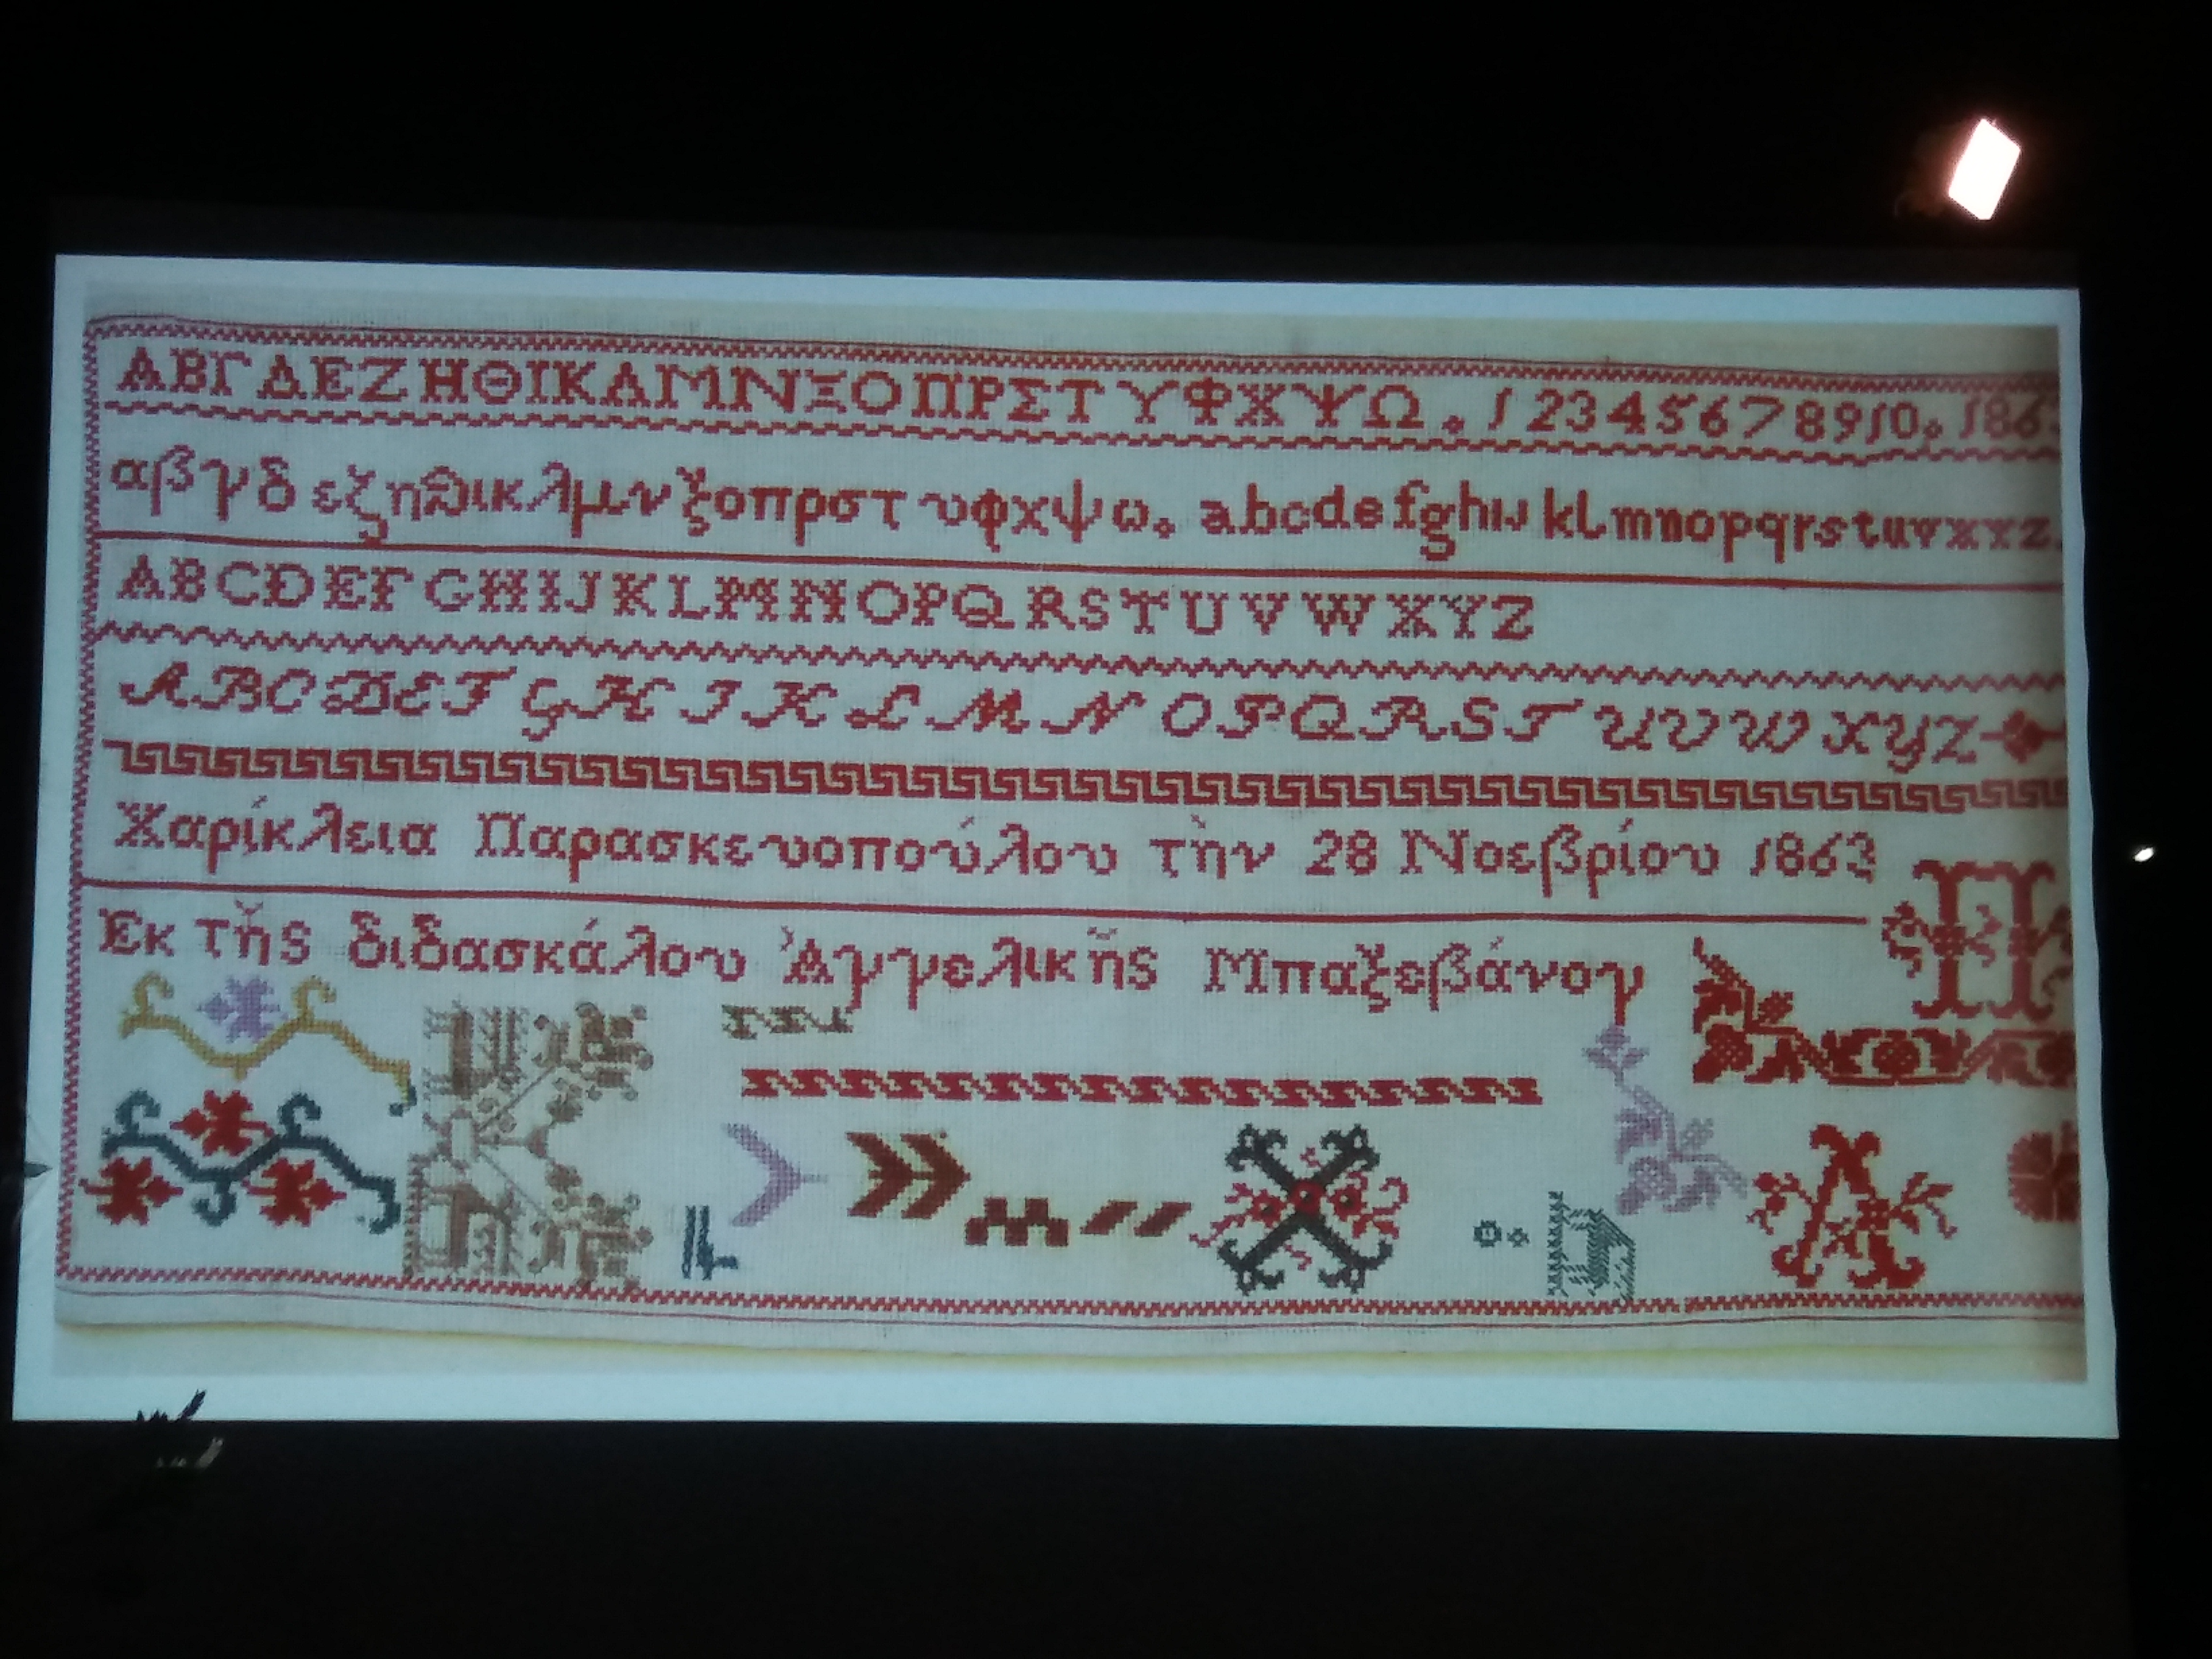 ΑΒΓΔΕΖΗΘΙΚΛΜΝΞΟΠΡΣΤΥΦΧΨΩ. 12345678910. 1863
αβγδεζηθικλμνξοπρστυφχψω. abcdefghij klmnopqrstuvxyz.
ABCDEFGHIJKLMNOPQRSTUVWXYZ
ABCDEFGHIJKLMNOPQRSTUVWXYZ
Χαρίκλεια Παρασκευοπούλου τὴν 28 Νοεβρίου 1863
Εκ τῆς διδασκάλου Ἀγγελικῆς Μπαξεβάνογ